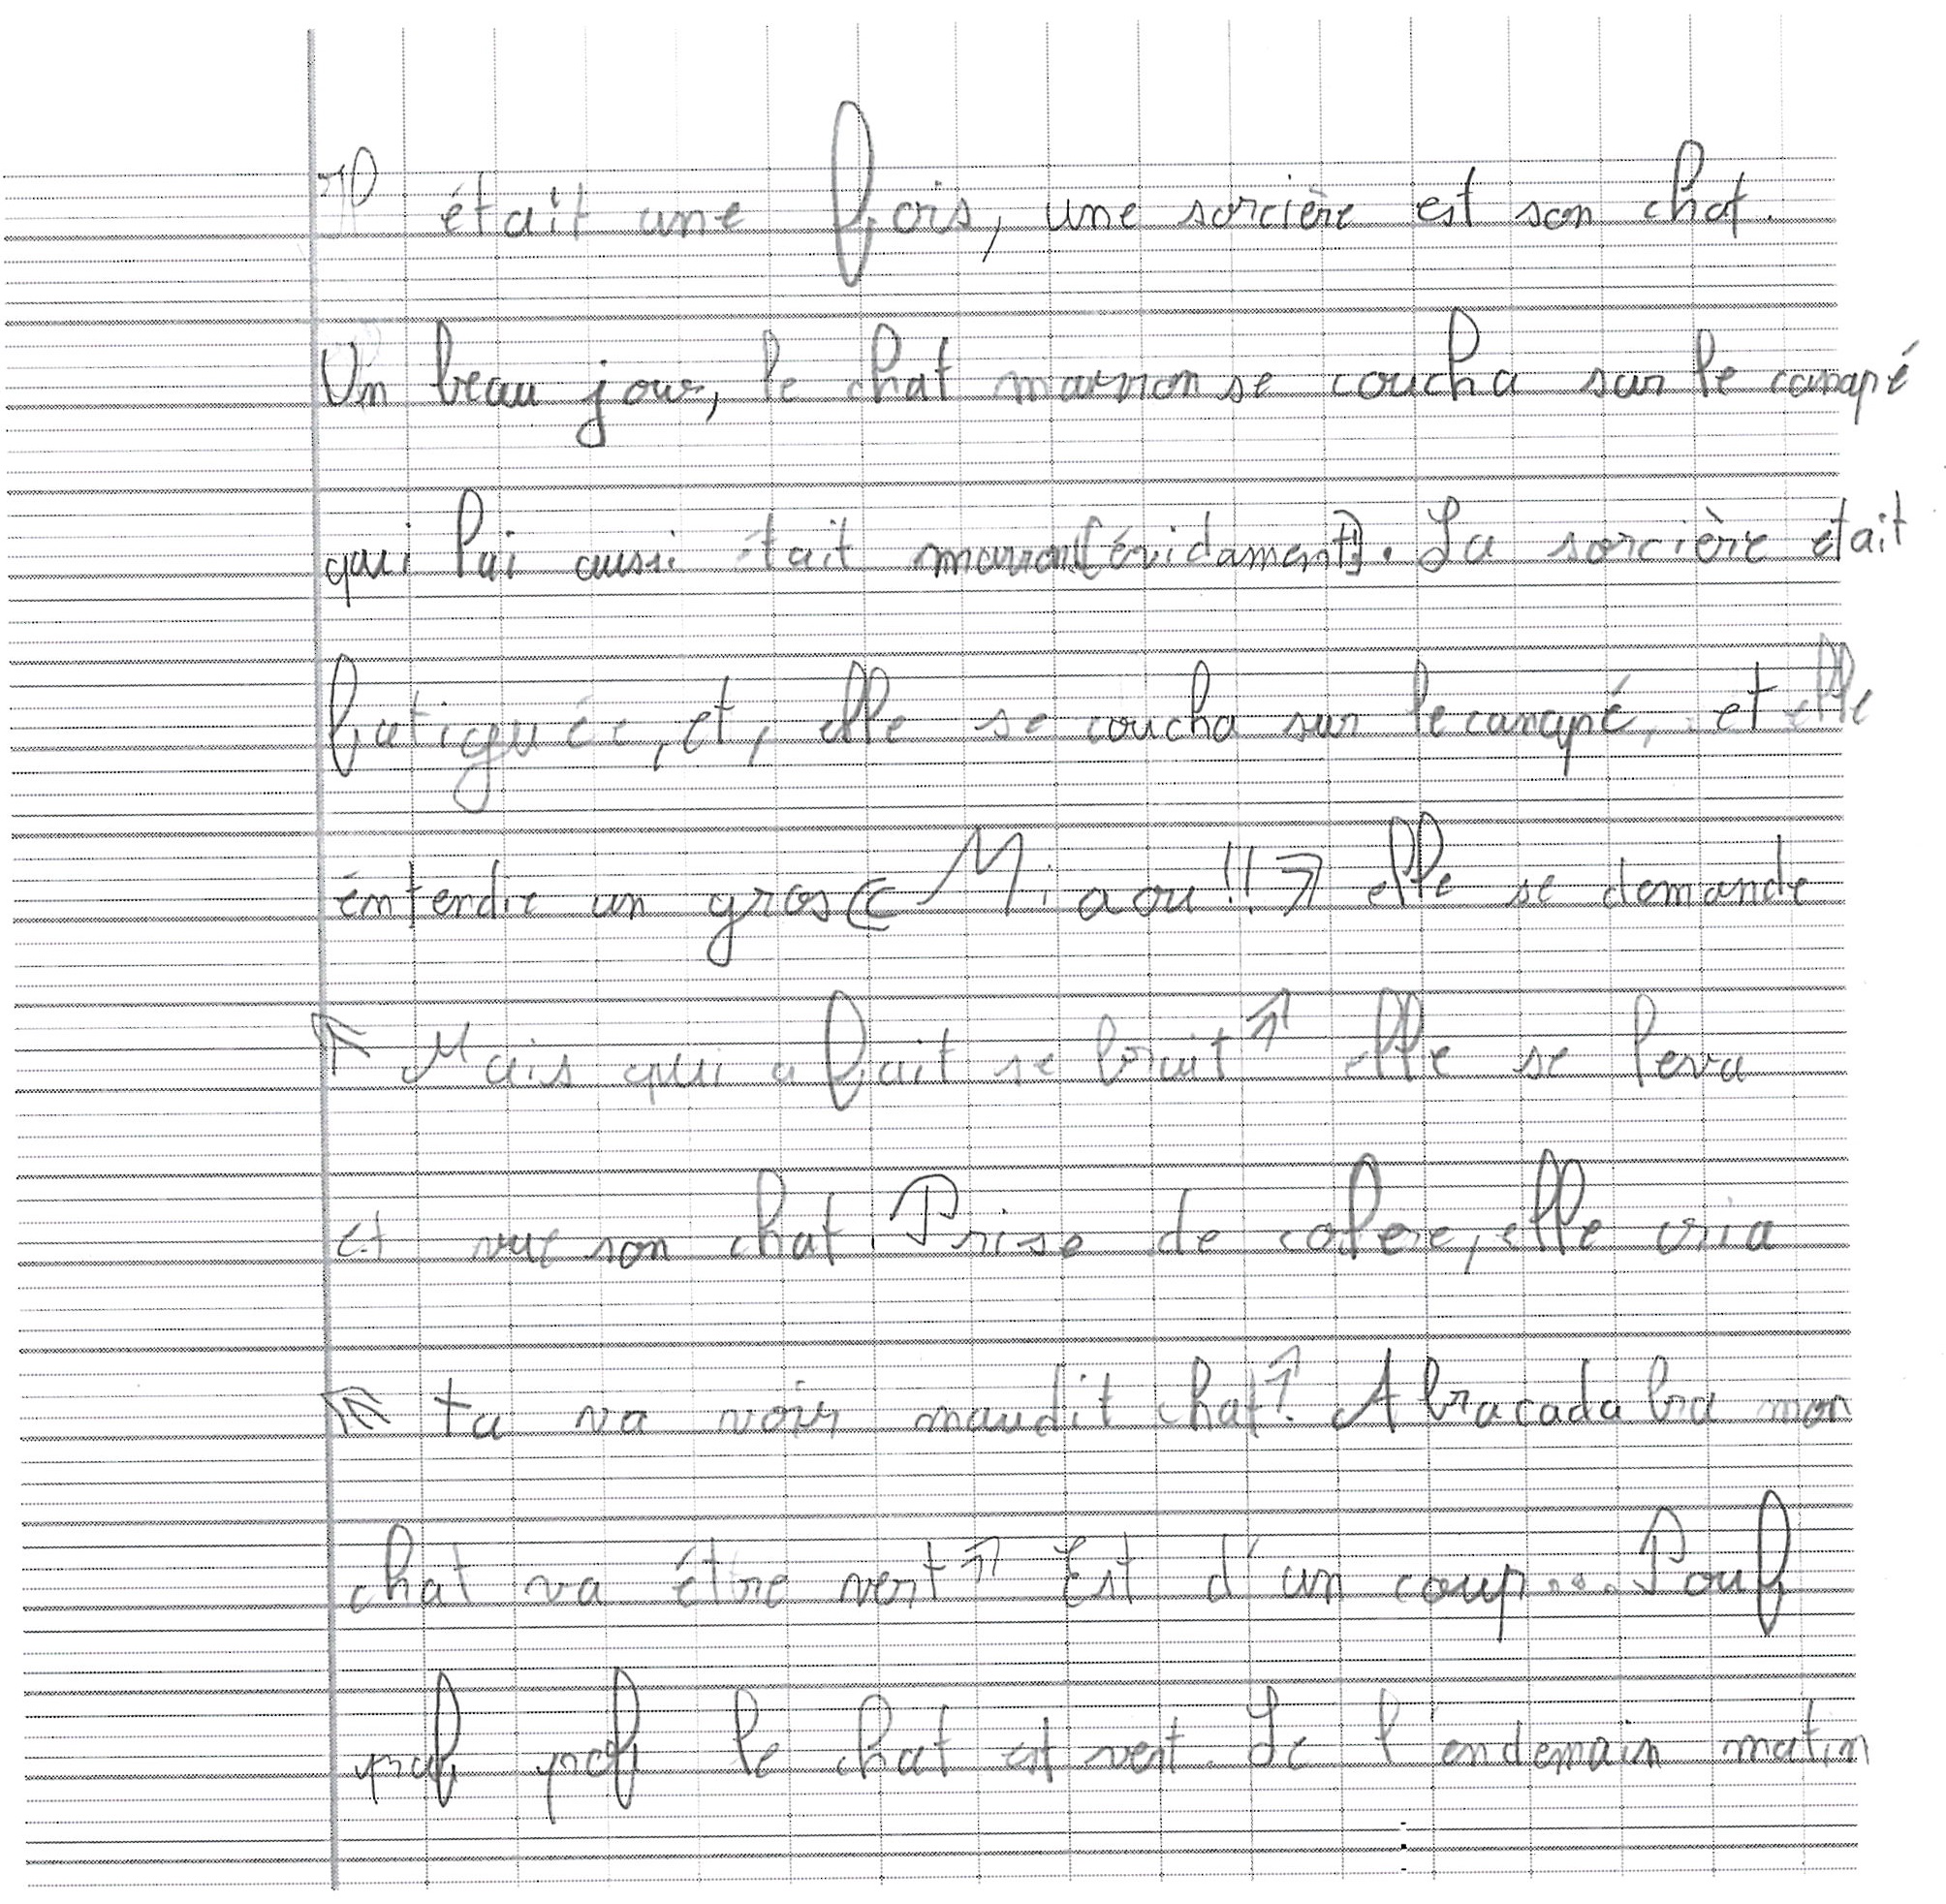 Il était une fois, une sorcière est son chat.
Un beau jour, le chat marron se coucha sur le canapé
qui lui aussi était marron (évidament). La sorcière était
fatiguée, et, elle se coucha sur le canapé, et elle
entendie un gros « Miaou!! » elle se demande
« Mais qui a fait se bruit » elle se leva
et vue son chat. Prise de colere, elle cria
« tu va voir maudit chat! Abracadabra mon
chat va être vert » Est d'un coup... Pouf
pouf le chat est vert. Le l'endemain matin